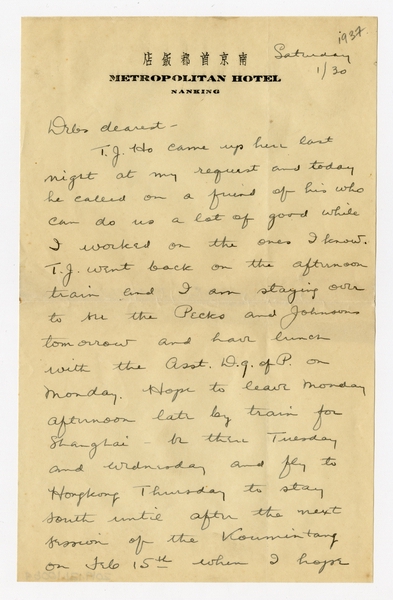 1937.
Saturday
1/30
店飯都首京南
METROPOLITAN HOTEL
NANKING
Debs dearest -
T.J. Ho came up here last
night at my request and today
he called on a friend of his who
can do us a lot of good while
I worked on the ones I know.
T.J. went back on the afternoon
train and I am staying over
to see the Pecks and Johnsons
tomorrow and have lunch
with the Asst. D.g. of P. on
Monday. Hope to leave Monday
afternoon late by train for
Shanghai - be there Tuesday
and Wednesday and fly to
Hongkong Thursday to stay
south until after the next
session of the Koumintang
on Feb 15th when I hope